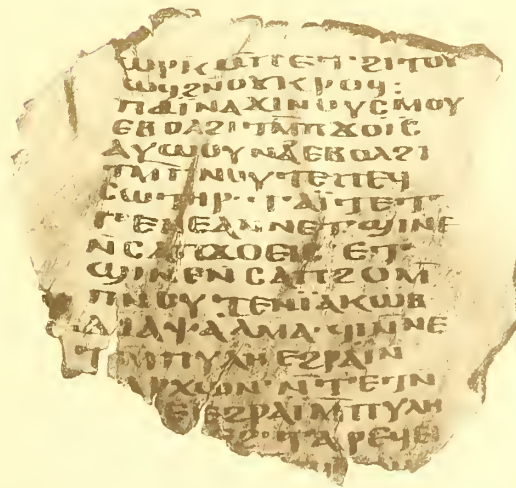 ⲱⲣⲕ ⲙⲡⲉⲧ·ϩⲓⲧⲟⲩ
ⲱϥϩⲛⲟⲩⲕⲣⲟϥ:
ⲡⲁⲓⲛⲁϫⲓⲛⲟⲩⲥⲙⲟⲩ
ⲉⲃⲟⲗϩⲓⲧⲙ̄ⲡϫⲟⲓⲥ
ⲁⲩⲱⲟⲩⲛⲁⲉⲃⲟⲗϩⲓ
ⲧⲙ̄ⲡⲛⲟⲩⲧⲉⲡⲉϥ
ⲥⲱⲧⲏⲣ·ⲧⲁⲓⲧⲉⲧ
ⲅⲉⲛⲉⲁⲛⲛⲉⲧϣⲓⲛⲉ
ⲛⲥⲁⲡϫⲟⲉⲓⲥ ⲉⲧ·
ϣⲓⲛⲉⲛⲥⲁⲡϩⲟⲙ
ⲡⲛⲟⲩⲧⲉⲛⲓⲁⲕⲱⲃ
ⲇⲓⲁⲯⲁⲗⲙⲁ·ϥⲓⲛⲛⲉ
ⲧⲙ̄ⲡⲩⲗⲏⲉϩⲣⲁⲓⲛ
ⲁⲣⲭⲱⲛ·ⲛⲧⲉⲧⲛ
ⲉⲓⲉϩⲣⲁⲓⲙⲡⲩⲗⲏ
ⲉϩ·ⲧⲁⲣⲉϥⲉⲓ